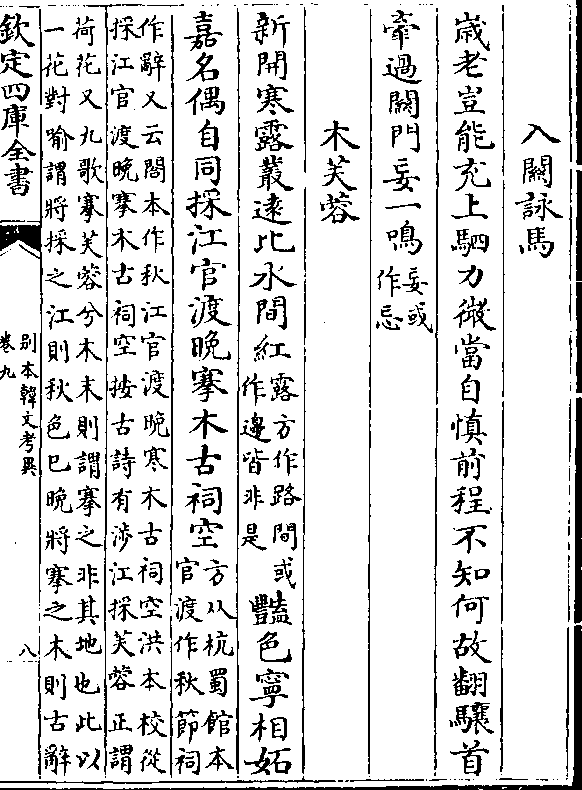 入闗詠馬
歳老豈能充上駟力微當自慎前程不知何故翻驤首
牽過闗門妄一鳴妄或
作忌
木芙蓉
新開寒露叢逺比水間紅露方作路間或
作邊皆非是豔色寧相妬
嘉名偶自同採江官渡晚搴木古祠空方从杭蜀館本
官渡作秋節祠
作辭又云閣本作秋江官渡晚寒木古祠空洪本校從
採江官渡晚搴木古祠空按古詩有涉江採芙蓉正謂
荷花又九歌搴芙蓉兮木末則謂搴之非其地也此以
一花對喻謂將採之江則秋色已晚將搴之木則古辭
欽定四庫全書
别本韓文考異
卷九
八